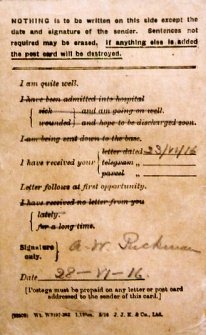 NOTHING is to be written on this side except the
date and signature of the sender. Sentences not
required may be erased. If anything else is added
the post card will be destroyed.
I am quite well.
I have been admitted into hospital
sick and am going on well.
wounded and hope to be discharged soon.
I am being sent down to the base.
letter dated 23/VI/16
I have received your telegram „
parcel „
Letter follows at first opportunity.
I have received no letter from you
lately.
for a long time.
Signature
only. A. W.
Date 28-VI-16
[Postage must be prepaid on any letter or post card
addressed to the sender of this card.]
5/16 J. J. K. & Co., Ltd.